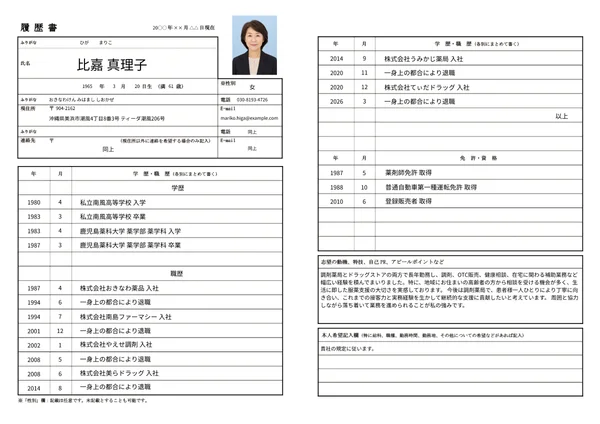 履 歴 書
20〇〇 年 ×× 月 △△ 日現在
ふりがな ひが まりこ
氏名 比嘉 真理子
1965 年 3 月 20 日生 (満 61 歳)
※性別
女
ふりがな おきなわけん みはまし しおかぜ
現住所 〒 904-2162
沖縄県美浜市潮風4丁目8番3号 ティーダ潮風206号
電話 090-8193-4726
E-mail
mariko.higa@example.com
ふりがな
連絡先 〒 (現住所以外に連絡を希望する場合のみ記入)
同上
電話 同上
E-mail
同上
年 月 学 歴・職 歴 (各別にまとめて書く)
学歴
1980 4 私立南風高等学校 入学
1983 3 私立南風高等学校 卒業
1983 4 鹿児島薬科大学 薬学部 薬学科 入学
1987 3 鹿児島薬科大学 薬学部 薬学科 卒業
職歴
1987 4 株式会社おきなわ薬品 入社
1994 6 一身上の都合により退職
1994 7 株式会社南島ファーマシー 入社
2001 12 一身上の都合により退職
2002 1 株式会社やえせ調剤 入社
2008 5 一身上の都合により退職
2008 6 株式会社美らドラッグ 入社
2014 8 一身上の都合により退職
※「性別」欄：記載は任意です。未記載とすることも可能です。
年 月 学 歴・職 歴 (各別にまとめて書く)
2014 9 株式会社うみかじ薬局 入社
2020 11 一身上の都合により退職
2020 12 株式会社てぃだドラッグ 入社
2026 3 一身上の都合により退職
以上
年 月 免 許・資 格
1987 5 薬剤師免許 取得
1988 10 普通自動車第一種運転免許 取得
2010 6 登録販売者 取得
志望の動機、特技、自己PR、アピールポイントなど
調剤薬局とドラッグストアの両方で長年勤務し、調剤、OTC販売、健康相談、在宅に関わる補助業務など
幅広い経験を積んでまいりました。特に、地域にお住まいの高齢者の方から相談を受ける機会が多く、生
活に即した服薬支援の大切さを実感しております。今後は調剤薬局で、患者様一人ひとりにより丁寧に向
き合い、これまでの接客力と実務経験を生かして継続的な支援に貢献したいと考えています。周囲と協力
しながら落ち着いて業務を進められることが私の強みです。
本人希望記入欄 (特に給料、職種、勤務時間、勤務地、その他についての希望などがあれば記入)
貴社の規定に従います。